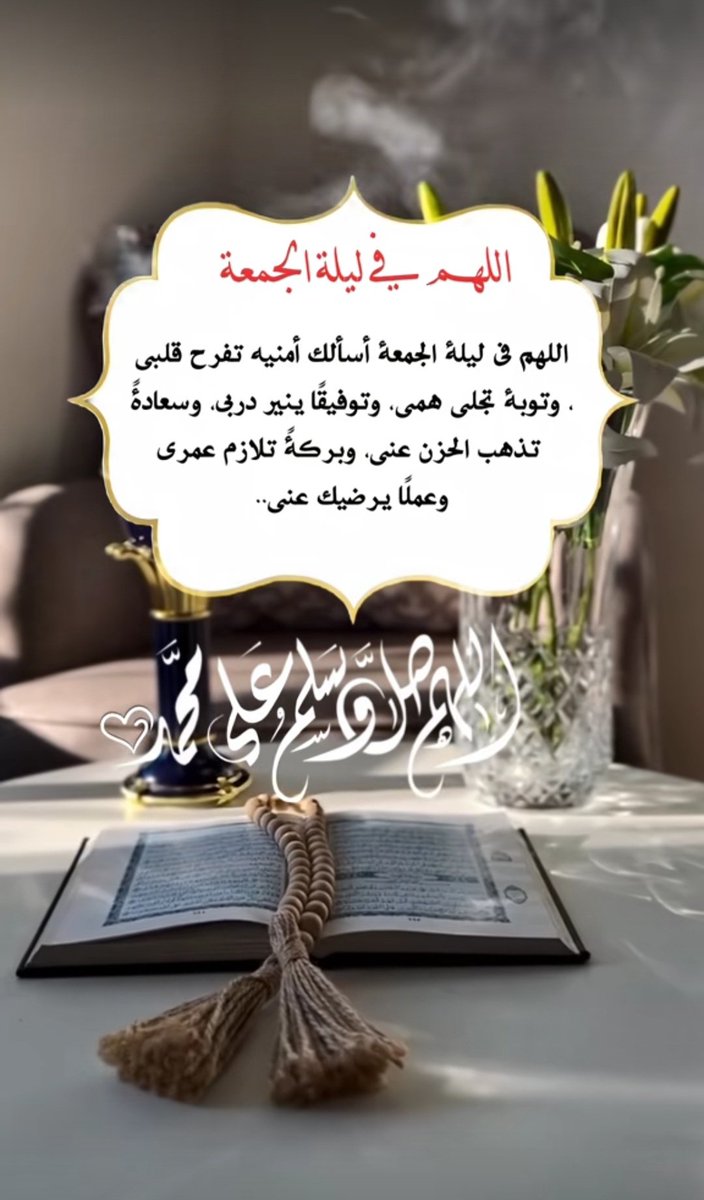 اللهم في ليلة الجمعة
اللهم فى ليلة الجمعة أسألك أمنيه تفرح قلبى
، وتوبة تجلى همى، وتوفيقًا ينير دربى، وسعادةً
تذهب الحزن عنى، وبركةً تلازم عمرى
وعملًا يرضيك عنى..
اللهم صل وسلم على محمد